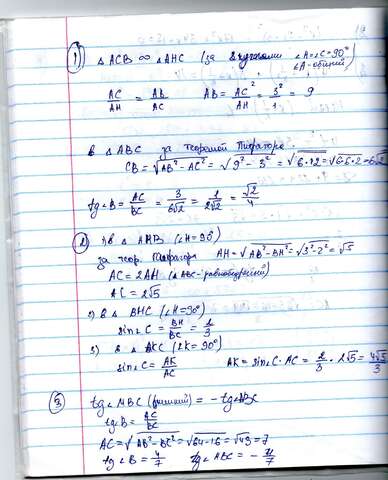 1) △ACB ∞ △AHC (за 2 кутами ∠A=∠C=90°
∠A-общий)
AC/AH = AB/AC AB = AC²/AH = 3²/1 = 9
в △ABC за теоремой Пифагора
CB = √AB²-AC² = √9²-3² = √6·12 = √6·6·2 = 6√2
tg∠B = AC/BC = 3/6√2 = 1/2√2 = √2/4
2) 1) в △ AHB (∠H=90°)
за теор. Пифагора AH = √AB²-BH² = √3²-2² = √5
AC = 2AH (△ABC-равнобедрений)
AC = 2√5
2) в △ BHC (∠H=90°)
sin∠C = BH/BC = 2/3
3) в △ AKC (∠K=90°)
sin∠C = AK/AC AK = sin∠C·AC = 2/3 · 2√5 = 4√5/3
3) tg∠ABC (внешний) = -tg∠ABC
tg B = AC/BC
AC = √AB²-BC² = √64-16 = √49 = 7
tg∠B = 4/7 tg∠ABC = -4/7